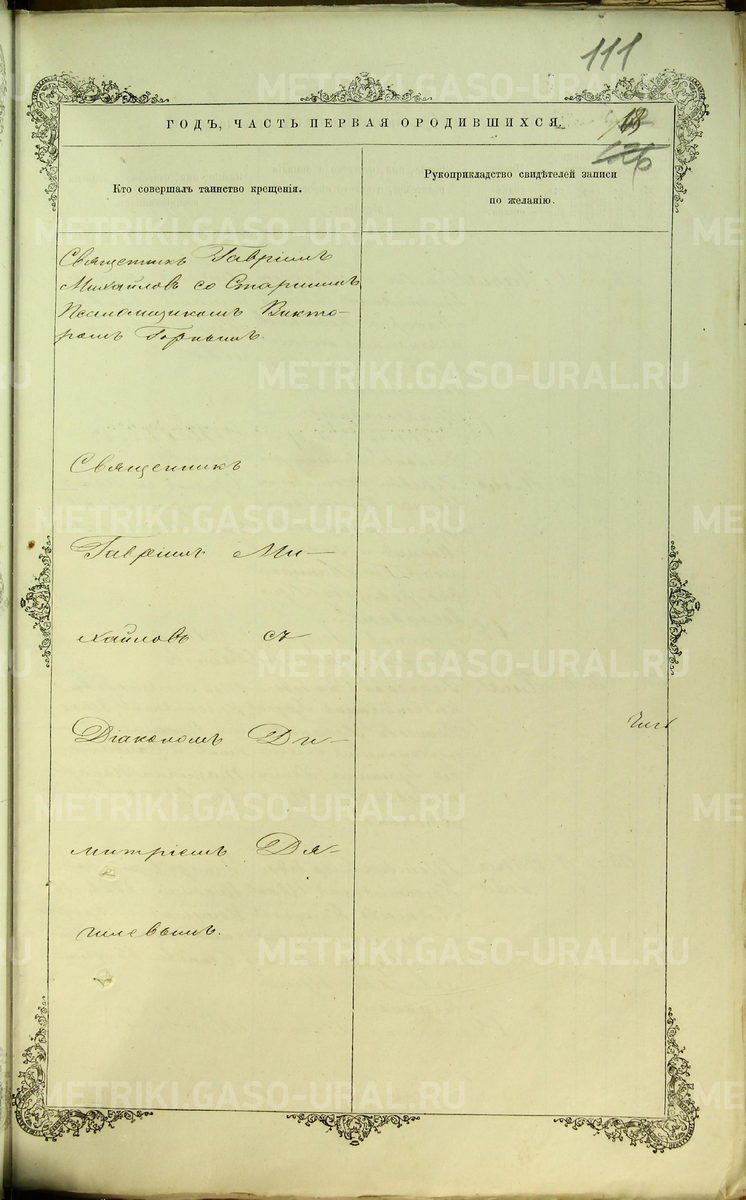 111
ГОДЪ, ЧАСТЬ ПЕРВАЯ ОРОДИВШИХСЯ.
126
Кто совершалъ таинство крещенія.
Рукоприкладство свидѣтелей записи
по желанію.
Священникъ Гавріилъ
Михайловъ со Старшимъ
Псаломщикомъ Викто–
ромъ Горныхъ.
Священникъ
Гавріилъ Ми–
хайловъ съ
Діакономъ Ди–
митріемъ Дя–
гилевымъ.
METRIKI.GASO-URAL.RU